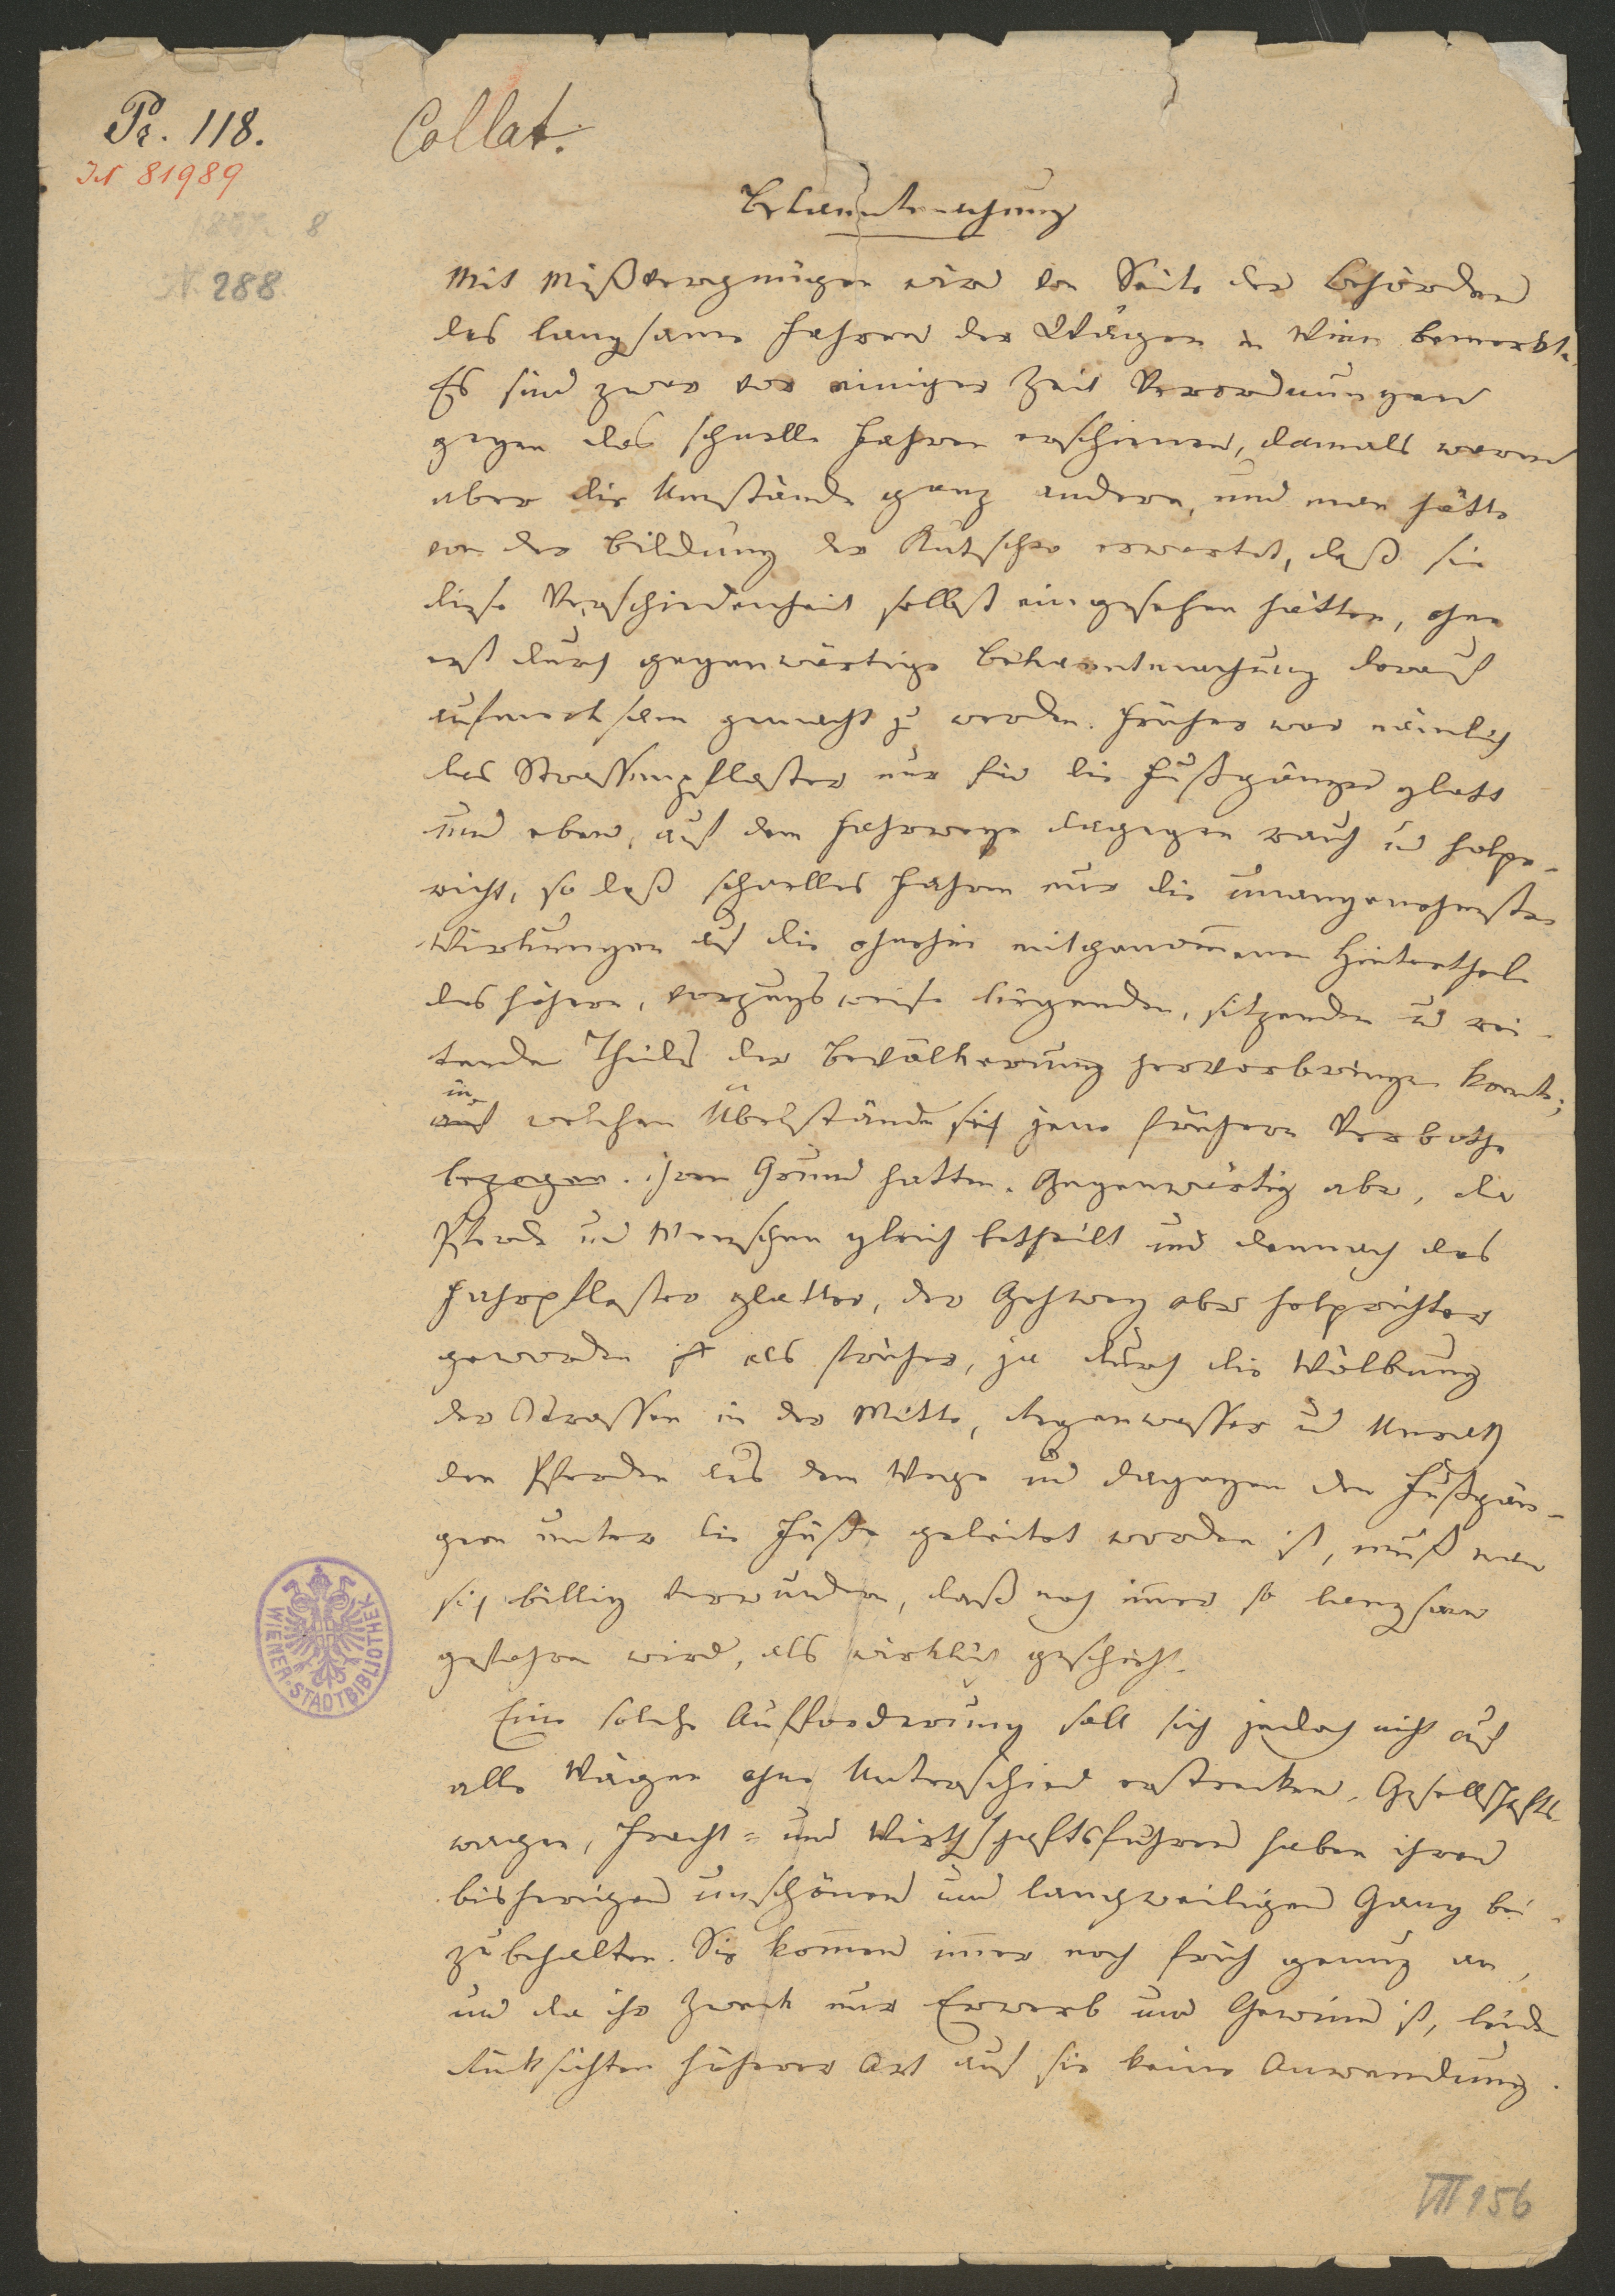 Pr. 118.
Collat.
IN 81989
8
N 288
Bekanntmachung
Mit Mißvergnügen wird von Seite der Behörden
das langsame Fahren der Wägen in Wien bemerkt.
Es sind zwar vor einiger Zeit Verordnungen
gegen das schnelle Fahren erschienen, damals waren
aber die Umstände ganz andere, und man hätte
von der Bildung der Kutscher erwartet, daß sie
diese Verschiedenheit selbst eingesehen hätten, ohne
erst durch gegenwärtige Bekanntmachung darauf
aufmerksam gemacht zu werden. Früher war nämlich
das Strassenpflaster nur für die Fußgänger glatt
und eben, auf dem Fahrwege dagegen rauh und holpe-
richt, so daß schnelles Fahren nur die unangenehmsten
Wirkungen auf die ohnehin mitgenommenen Hintertheile
des höhern, vorzugsweise liegenden, sitzenden und rei-
tenden Theils der Bevölkerung hervorbringen konnte;
in
auf welchen Übelständen sich jene frühern Verbothe
bezogen. ihren Grund hatten. Gegenwärtig aber, da
Pferde und Menschen gleich betheilt und demnach das
Fahrpflaster glatter, der Gehweg aber holprichter
geworden ist als früher, ja durch die Wölbung
der Strassen in der Mitte, Regenwasser und Unrath
den Pferden aus dem Wege und dagegen den Fußgän-
gern unter die Füße geleitet worden ist, muß man
sich billig verwundern, daß noch immer so langsam
gefahren wird, als wirklich geschieht.
Eine solche Aufforderung soll sich jedoch nicht auf
alle Wägen ohne Unterschied erstrecken. Gesellschafts-
wagen, Fracht- und Wirthschaftsfuhren haben ihren
bisherigen unschönen und langweiligen Gang bei-
zubehalten. Sie kommen immer noch früh genug an,
und da ihr Zweck nur Erwerb und Gewinn ist, leiden
Rücksichten höherer Art auf sie keine Anwendung.
WIENER-STADTBIBLIOTHEK
VII 156